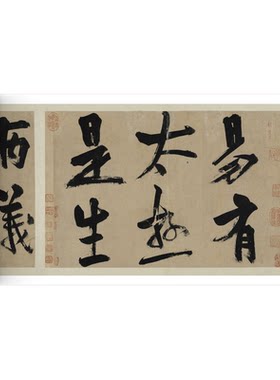 易有
太極
是生
兩儀